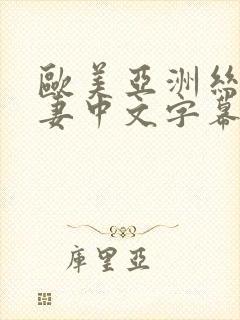 歐美亞洲絲
妻中文字幕
庫里亞